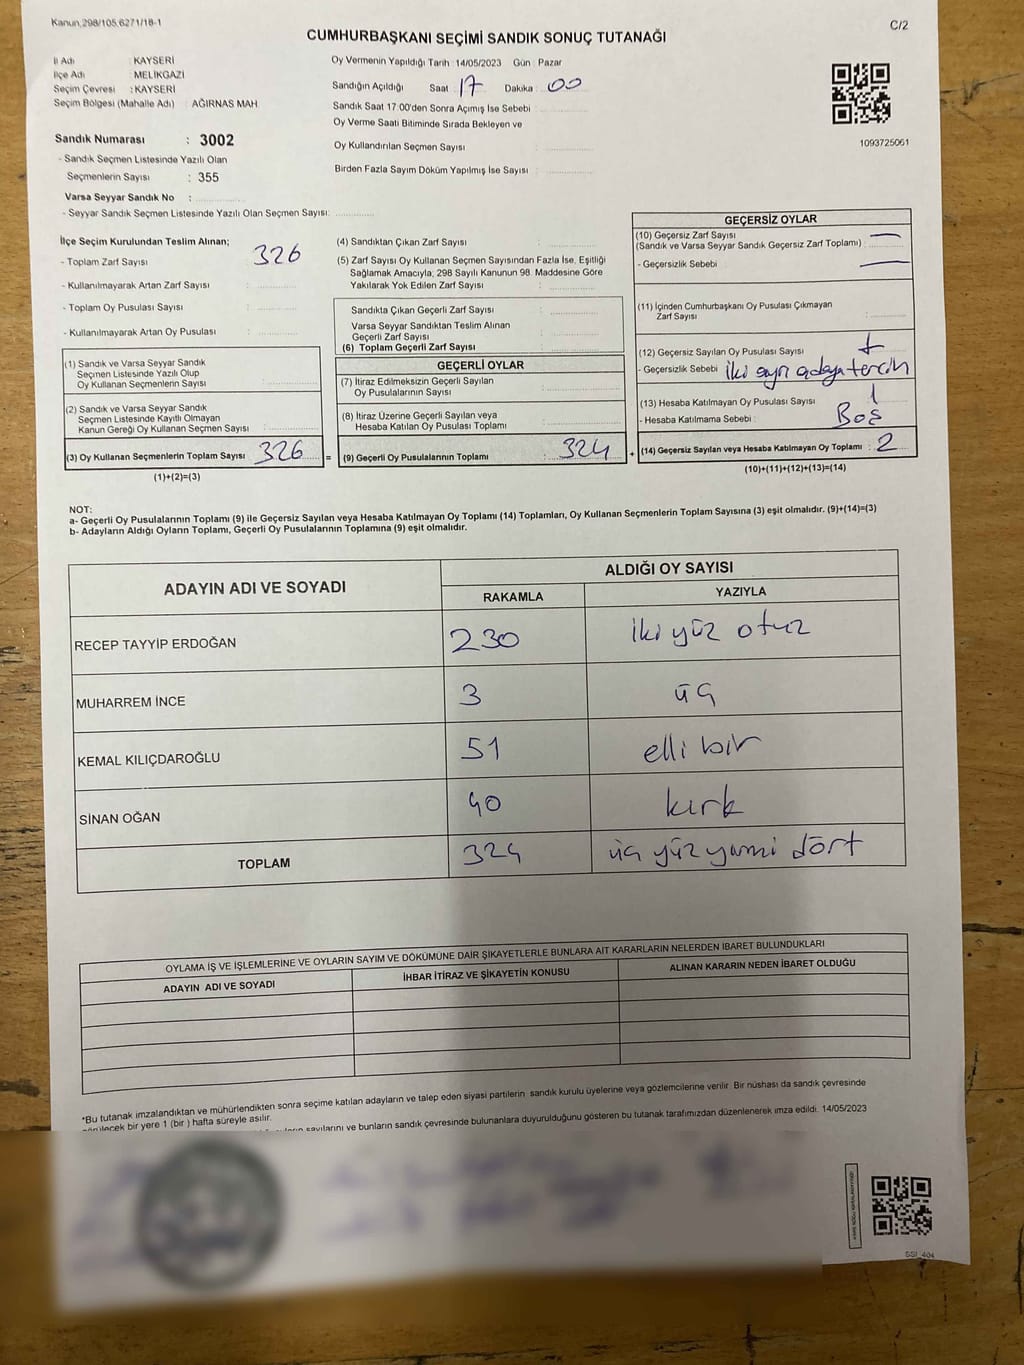 Kanun,298/105,6271/18-1
C/2
CUMHURBAŞKANI SEÇİMİ SANDIK SONUÇ TUTANAĞI
İl Adı : KAYSERİ
İlçe Adı : MELİKGAZİ
Seçim Çevresi : KAYSERİ
Seçim Bölgesi (Mahalle Adı) : AĞIRNAS MAH
Sandık Numarası : 3002
- Sandık Seçmen Listesinde Yazılı Olan
Seçmenlerin Sayısı : 355
Varsa Seyyar Sandık No :
- Seyyar Sandık Seçmen Listesinde Yazılı Olan Seçmen Sayısı:
Oy Vermenin Yapıldığı Tarih : 14/05/2023 Gün : Pazar
Sandığın Açıldığı Saat 17 Dakika : 00
Sandık Saat 17:00'den Sonra Açılmış İse Sebebi :
Oy Verme Saati Bitiminde Sırada Bekleyen ve
Oy Kullandırılan Seçmen Sayısı :
Birden Fazla Sayım Döküm Yapılmış İse Sayısı :
1093725061
İlçe Seçim Kurulundan Teslim Alınan;
- Toplam Zarf Sayısı 326
- Kullanılmayarak Artan Zarf Sayısı :
- Toplam Oy Pusulası Sayısı :
- Kullanılmayarak Artan Oy Pusulası :
(1) Sandık ve Varsa Seyyar Sandık
Seçmen Listesinde Yazılı Olup
Oy Kullanan Seçmenlerin Sayısı :
(2) Sandık ve Varsa Seyyar Sandık
Seçmen Listesinde Kayıtlı Olmayan
Kanun Gereği Oy Kullanan Seçmen Sayısı :
(3) Oy Kullanan Seçmenlerin Toplam Sayısı 326 =
(1)+(2)=(3)
(4) Sandıktan Çıkan Zarf Sayısı :
(5) Zarf Sayısı Oy Kullanan Seçmen Sayısından Fazla İse, Eşitliği
Sağlamak Amacıyla, 298 Sayılı Kanunun 98. Maddesine Göre
Yakılarak Yok Edilen Zarf Sayısı :
Sandıkta Çıkan Geçerli Zarf Sayısı :
Varsa Seyyar Sandıktan Teslim Alınan
Geçerli Zarf Sayısı :
(6) Toplam Geçerli Zarf Sayısı :
GEÇERLİ OYLAR
(7) İtiraz Edilmeksizin Geçerli Sayılan
Oy Pusulalarının Sayısı :
(8) İtiraz Üzerine Geçerli Sayılan veya
Hesaba Katılan Oy Pusulası Toplamı :
(9) Geçerli Oy Pusulalarının Toplamı : 324 +
GEÇERSİZ OYLAR
(10) Geçersiz Zarf Sayısı
(Sandık ve Varsa Seyyar Sandık Geçersiz Zarf Toplamı) : —
- Geçersizlik Sebebi : —
(11) İçinden Cumhurbaşkanı Oy Pusulası Çıkmayan
Zarf Sayısı :
(12) Geçersiz Sayılan Oy Pusulası Sayısı : 1
- Geçersizlik Sebebi : iki ayrı adaya tercih
(13) Hesaba Katılmayan Oy Pusulası Sayısı : 1
- Hesaba Katılmama Sebebi : Boş
(14) Geçersiz Sayılan veya Hesaba Katılmayan Oy Toplamı : 2
(10)+(11)+(12)+(13)=(14)
NOT:
a- Geçerli Oy Pusulalarının Toplamı (9) ile Geçersiz Sayılan veya Hesaba Katılmayan Oy Toplamı (14) Toplamları, Oy Kullanan Seçmenlerin Toplam Sayısına (3) eşit olmalıdır. (9)+(14)=(3)
b- Adayların Aldığı Oyların Toplamı, Geçerli Oy Pusulalarının Toplamına (9) eşit olmalıdır.
ADAYIN ADI VE SOYADI
ALDIĞI OY SAYISI
RAKAMLA YAZIYLA
RECEP TAYYİP ERDOĞAN 230 iki yüz otuz
MUHARREM İNCE 3 üç
KEMAL KILIÇDAROĞLU 51 elli bir
SİNAN OĞAN 40 kırk
TOPLAM 324 üç yüz yirmi dört
OYLAMA İŞ VE İŞLEMLERİNE VE OYLARIN SAYIM VE DÖKÜMÜNE DAİR ŞİKAYETLERLE BUNLARA AİT KARARLARIN NELERDEN İBARET BULUNDUKLARI
ADAYIN ADI VE SOYADI İHBAR İTİRAZ VE ŞİKAYETİN KONUSU ALINAN KARARIN NEDEN İBARET OLDUĞU
*Bu tutanak imzalandıktan ve mühürlendikten sonra seçime katılan adayların ve talep eden siyasi partilerin sandık kurulu üyelerine veya gözlemcilerine verilir. Bir nüshası da sandık çevresinde
görülecek bir yere 1 (bir ) hafta süreyle asılır.
sayılarını ve bunların sandık çevresinde bulunanlara duyurulduğunu gösteren bu tutanak tarafımızdan düzenlenerek imza edildi. 14/05/2023
SSI_404